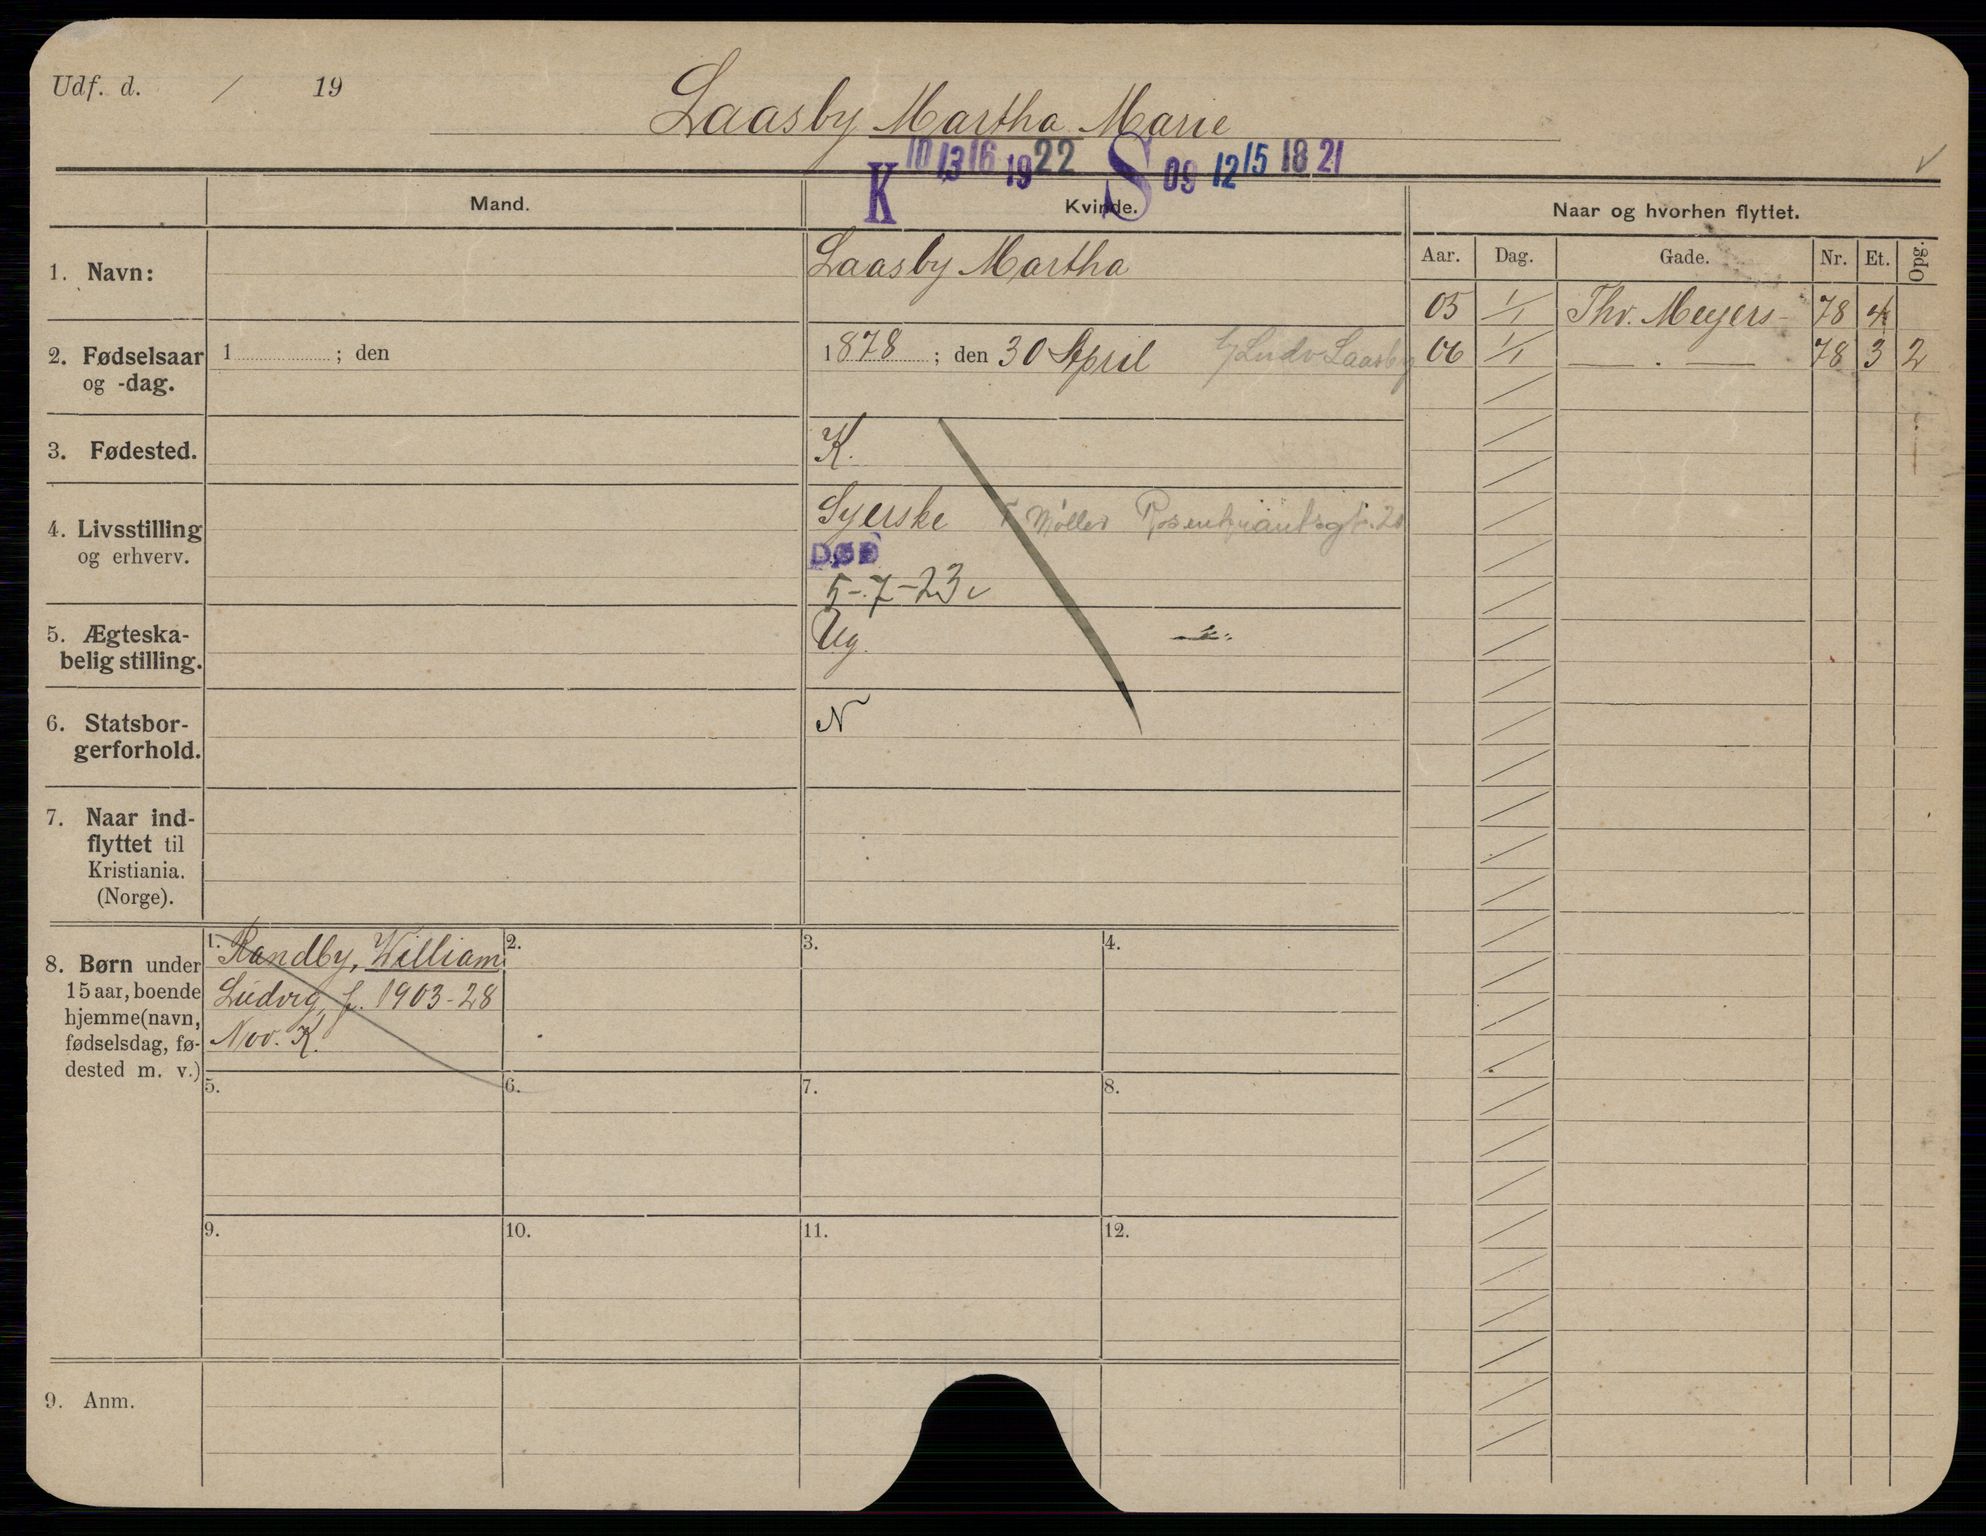 Udf. d. / 19
Laasby Martha Marie
K 10 13 16 19 22 S 09 12 15 18 21
Mand. Kvinde. Naar og hvorhen flyttet.
Aar. Dag. Gade. Nr. Et. Opg.
1. Navn: Laasby Martha
05 1/1 Thv. Meyers - 78 4
2. Fødselsaar 1 ; den 1878 ; den 30 April Ludv Laasby
og -dag.
06 1/1 — . — 78 3 2
3. Fødested. K.
4. Livsstilling Syerske Møller Rosenkrantsgt. 20
og erhverv. DØD
5-7-23
5. Ægteska- Ug.
belig stilling.
6. Statsbor- N
gerforhold.
7. Naar ind-
flyttet til
Kristiania.
(Norge).
8. Børn under
15 aar, boende
hjemme (navn,
fødselsdag, fø-
dested m. v.)
1. Randby, William
Ludvig, f. 1903-28
Nov. K.
2. 3. 4.
5. 6. 7. 8.
9. 10. 11. 12.
9. Anm.